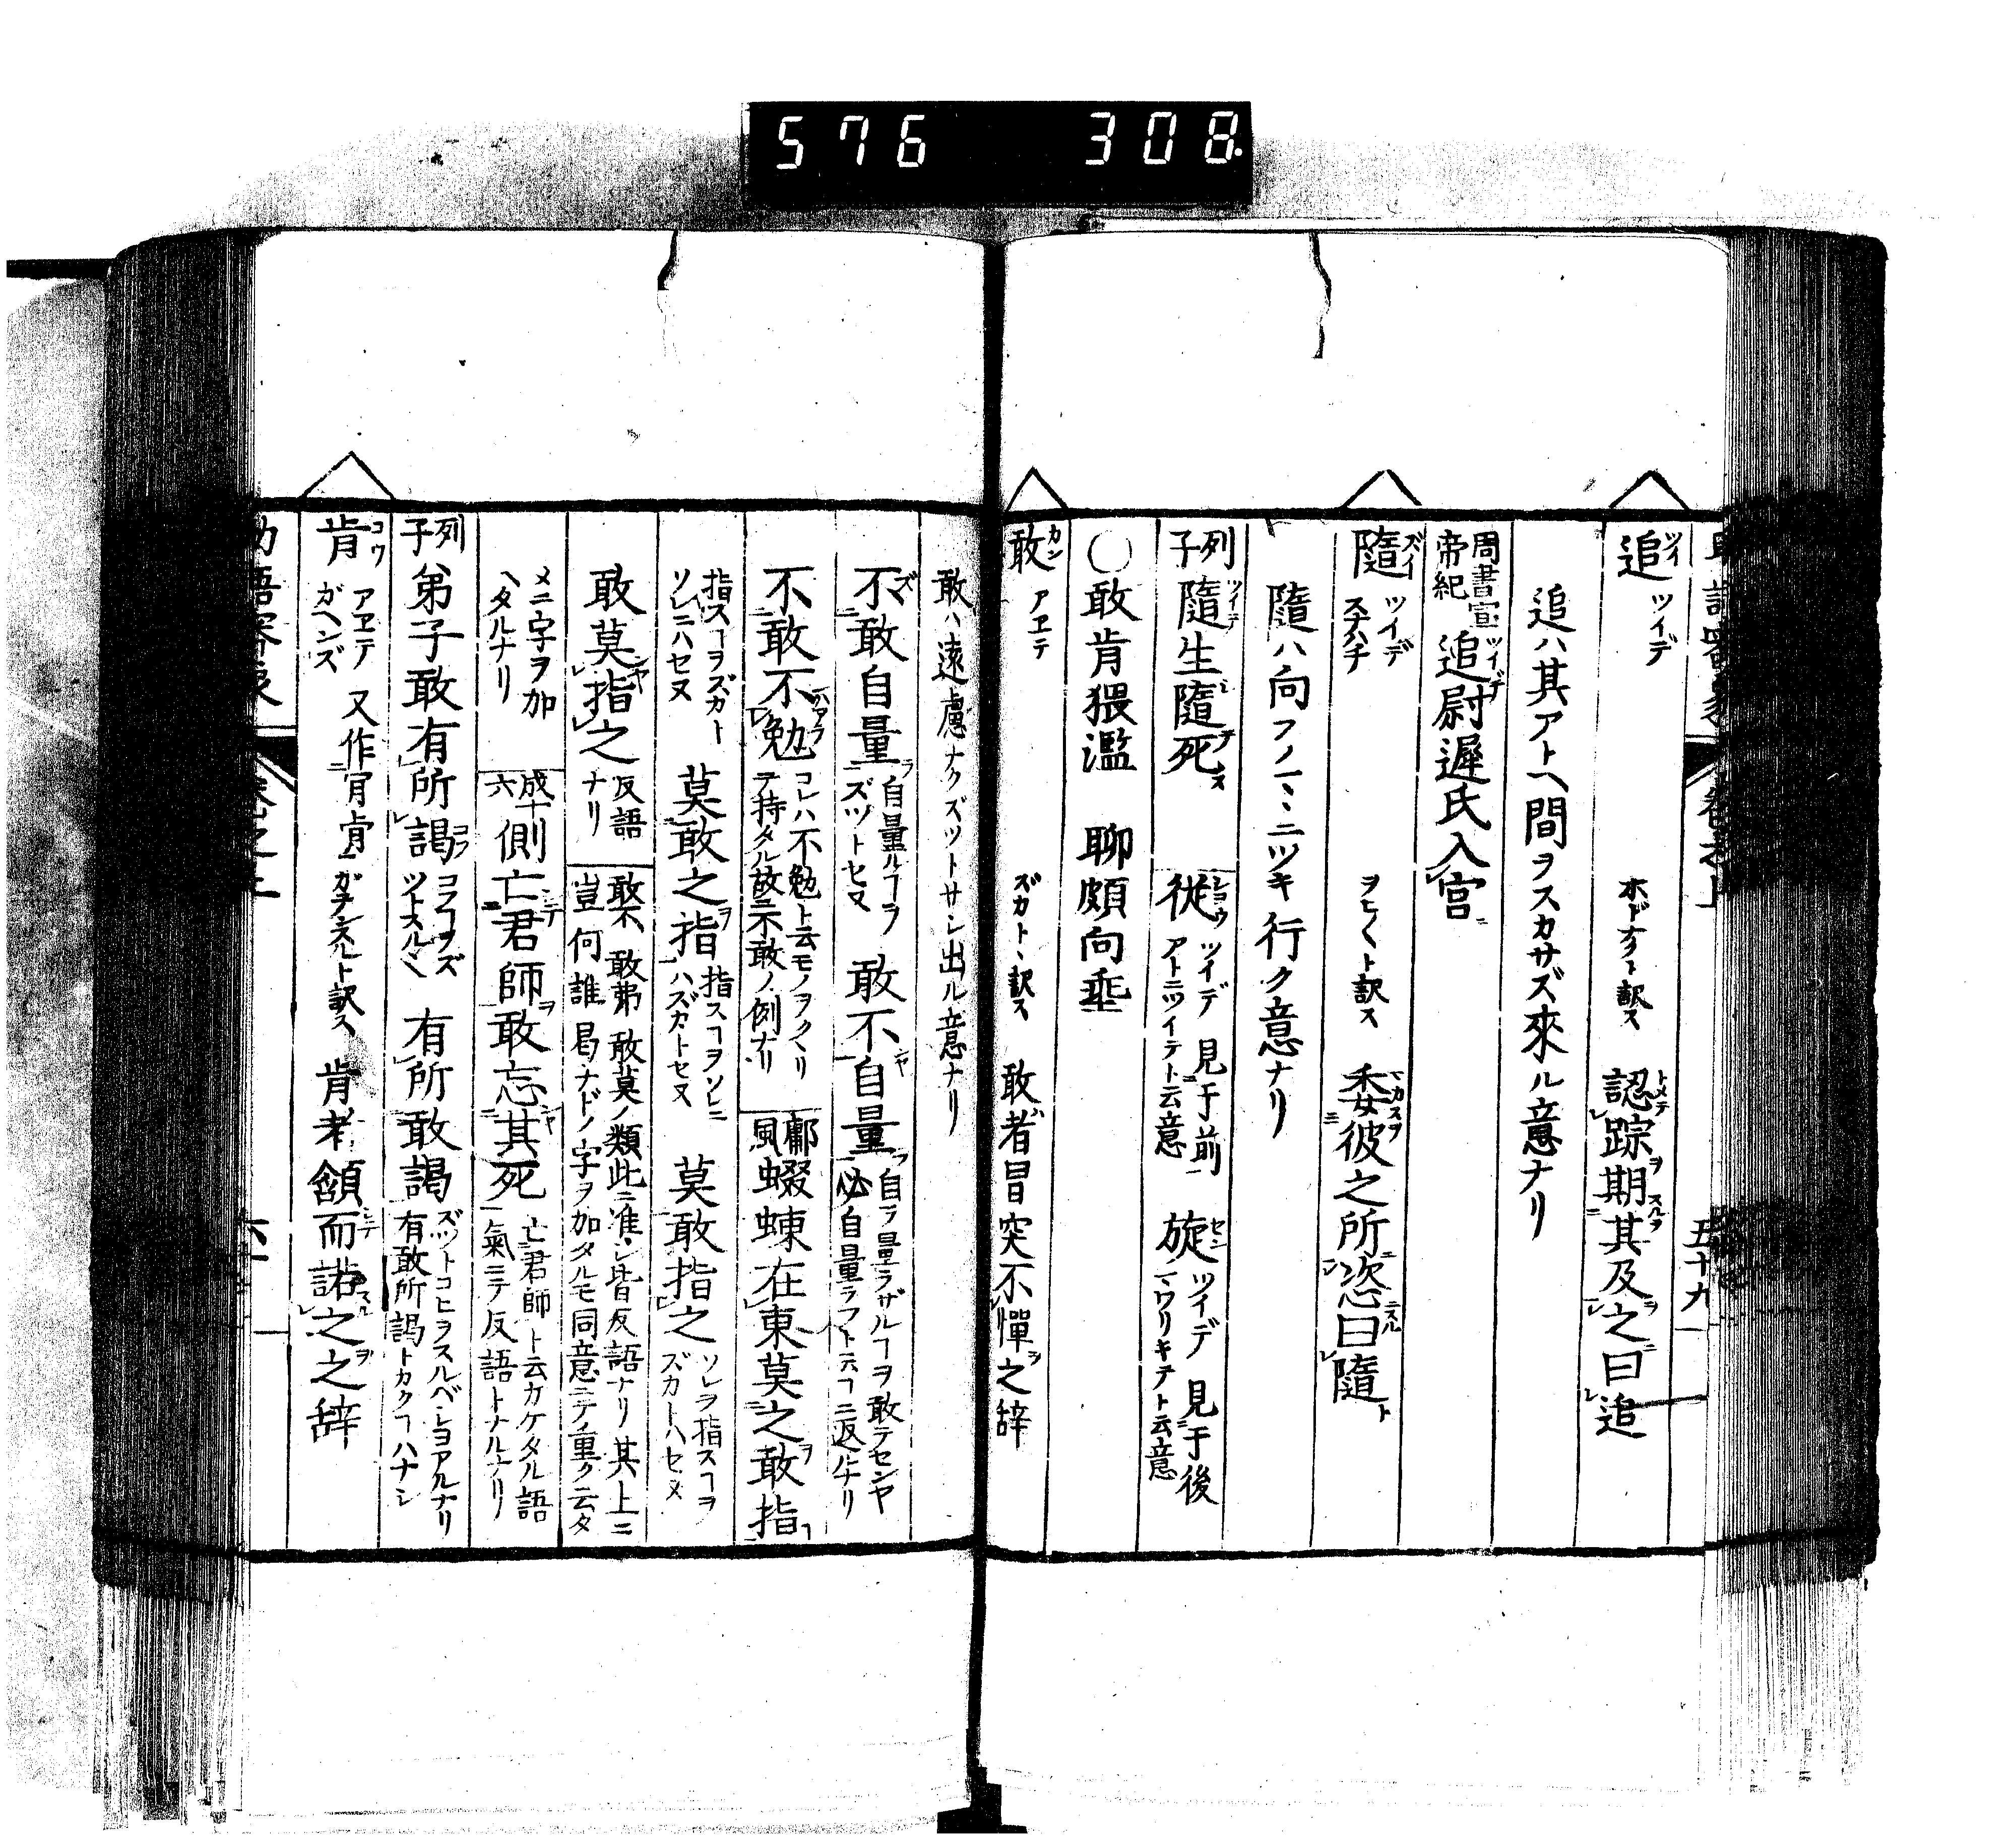 576 308
追 ツイ ツイデ ホドナクト訳ス 認踪期其及之曰追
追ハ其アトヘ間ヲスカサズ來ル意ナリ
周書宣帝紀 追尉遲氏入宮
隨 ズイ ツイデ スナハチ ト訳ス 委彼之所恣曰隨
隨ハ向フノ ニツキ行ク意ナリ
列子 隨生隨死 從 ツイデ 見于前 アトニツイテト云意 旋 セン ツイデ 見于後 マワリキテト云意
〇敢肯猥濫 聊頗向垂
敢 カン アヱテ ズカトヽ訳ス 敢者冒突不憚之辞
敢ハ遠慮ナクズツトサシ出ル意ナリ
不敢自量 自量ルヿヲズツトセヌ 敢不自量 自ラ量ラザルヿヲ敢テセンヤ 必自量ラフト云ヿニ返ルナリ
不敢不勉 コレハ不勉ト云モノヲクヽリヲ持タル故ニ不敢ノ例ナリ 鄘風 蝃蝀在東莫之敢指
指スヿヲズカトソレニハセヌ 莫敢之指 指スヿヲソレニハズカトセヌ 莫敢指之 ソレヲ指スヿヲズカトハセヌ
敢莫指之 反語ナリ 敢不 敢弗 敢莫ノ類此ニ准シ皆反語ナリ其上ニ豈何誰曷ナドノ字ヲ加タルモ同意ニテ重ク云タ
メニ字ヲ加ヘタルナリ 成十六 側亡君師敢忘其死 亡君師ト云カケタル語氣ニテ反語トナルナリ
列子 弟子敢有所謁 コフヿヲズツトスル 有所敢謁 ズツトコヒヲスルベシヨアルナリ 有敢所謁トカクヿハナシ
肯 コウ アヱテ ガヘンズ 又作 ガテンスルト訳ス 肯者頷而諾之之辞
五十九